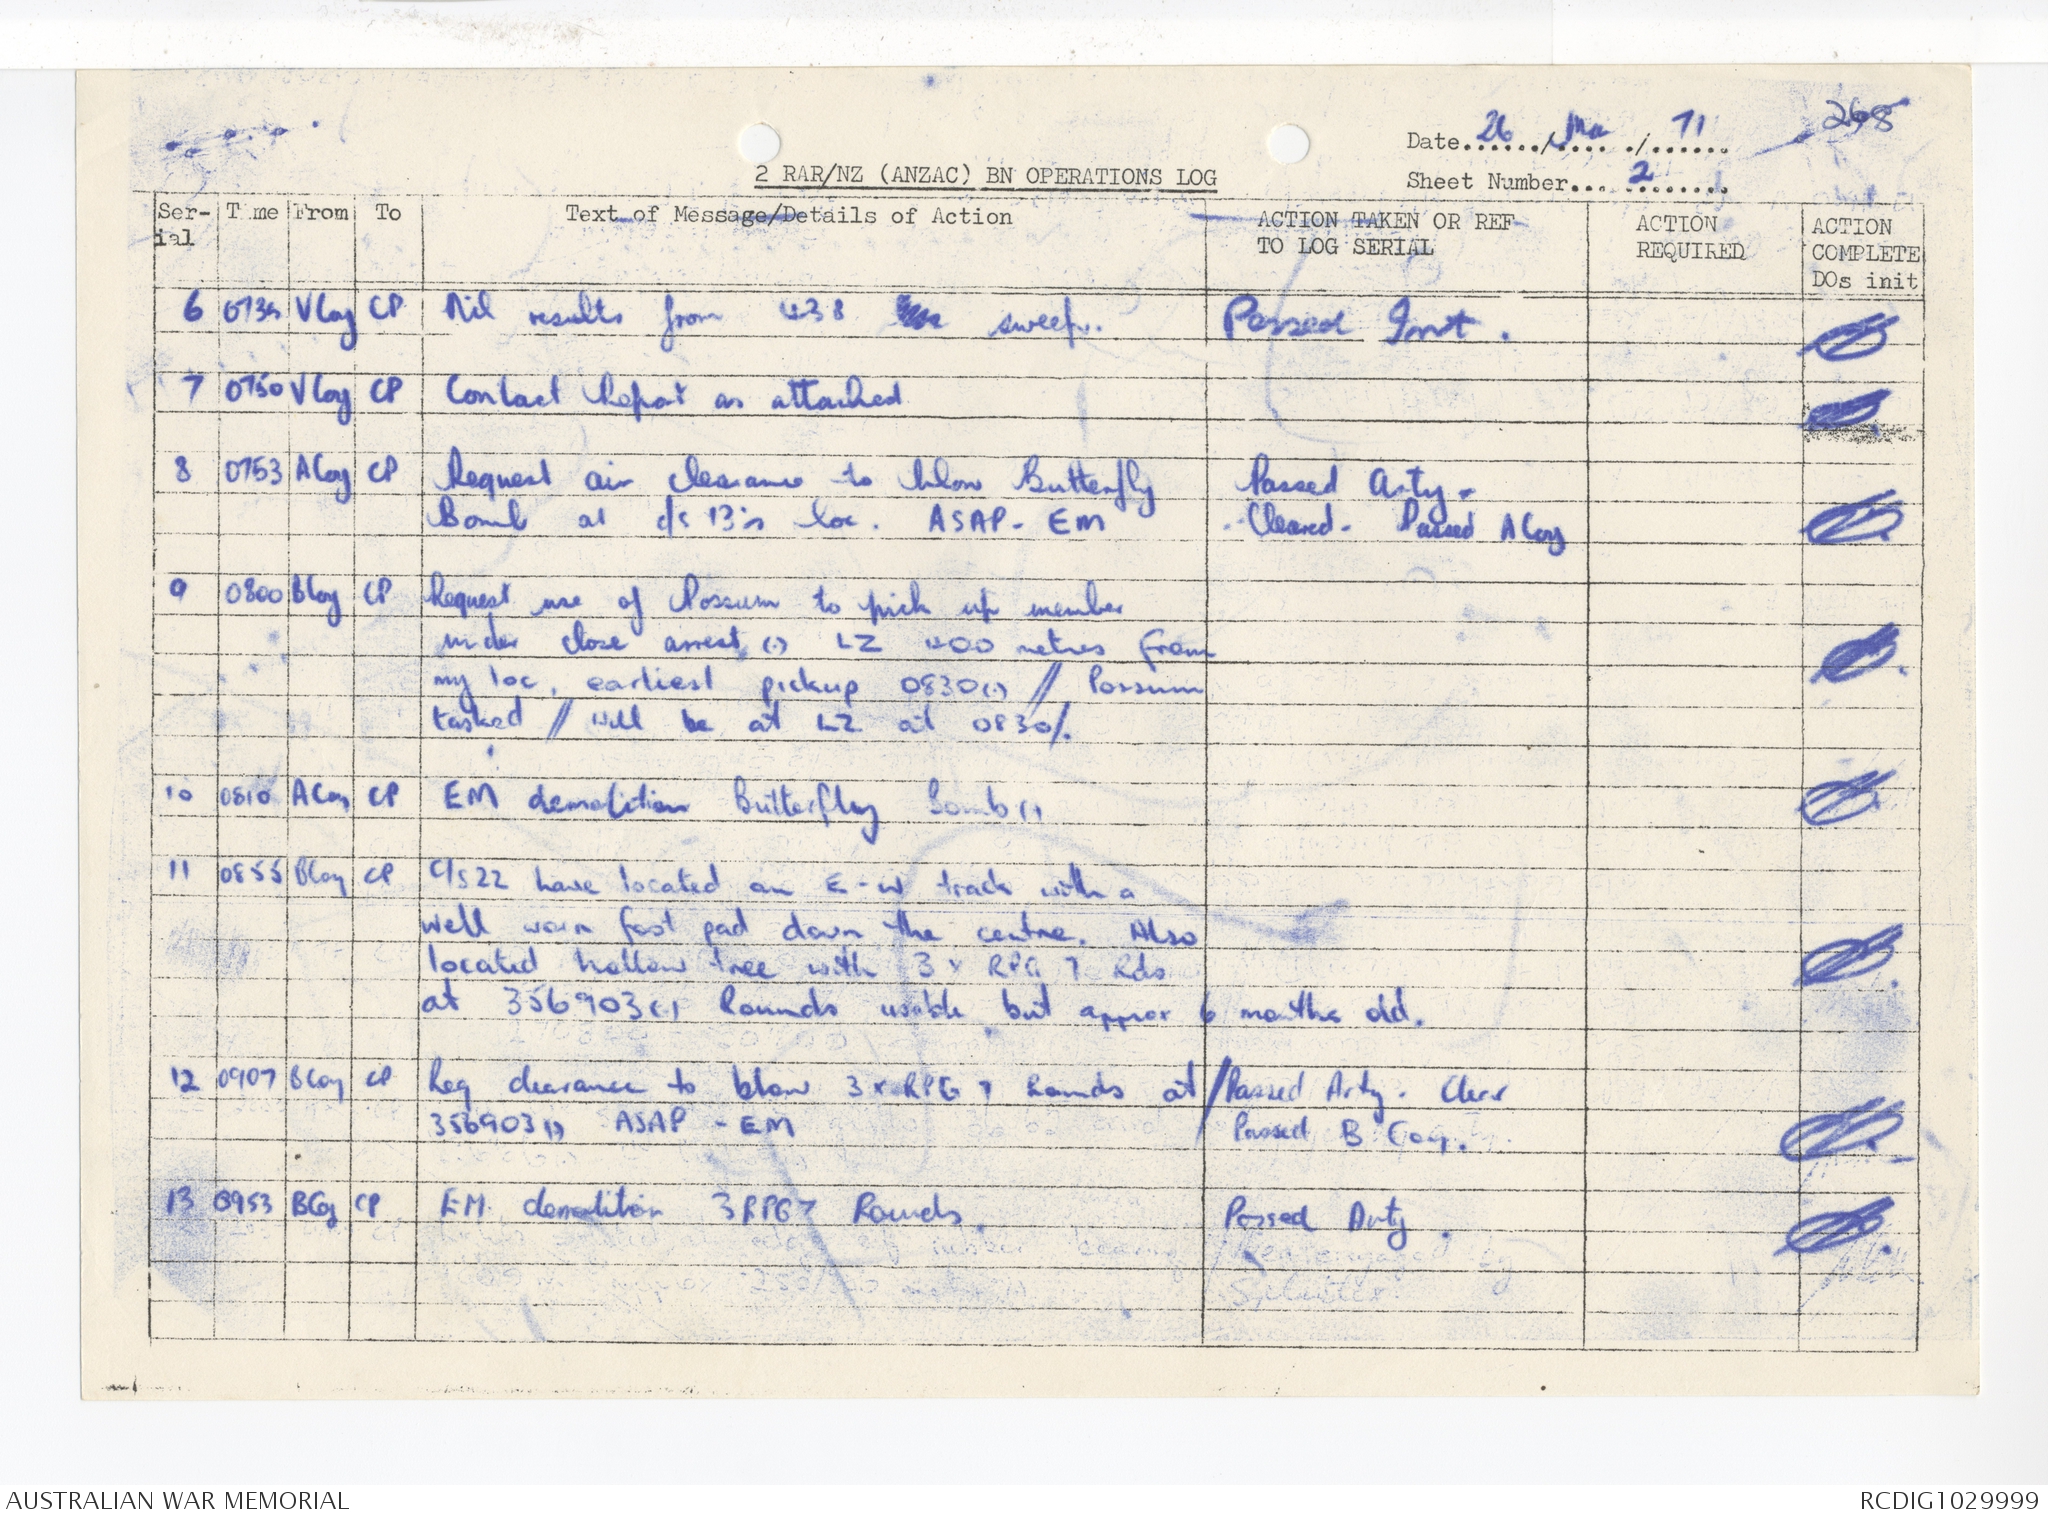 268
Date 26/Mar/71
2 RAR/NZ (ANZAC) BN OPERATIONS LOG
Sheet Number 2
Ser-ial Time From To Text of Message/Details of Action ACTION TAKEN OR REF TO LOG SERIAL ACTION REQUIRED ACTION COMPLETE DOs init
6 0735 VCoy CP Nil results from 438 sweep. Passed Int.
7 0750 VCoy CP Contact Report as attached
8 0753 ACoy CP Request air clearance to blow Butterfly Passed Arty.
Bomb at c/s 13's loc. ASAP - EM Cleared. Passed A Coy
9 0800 BCoy CP Request use of Possum to pick up member
under close arrest (.) LZ 400 metres from
my loc, earliest pickup 0830(.) // Possum
tasked // will be at LZ at 0830/.
10 0810 ACoy CP EM demolition Butterfly Bomb (.)
11 0855 BCoy CP C/S22 have located an E-W track with a
well worn foot pad down the centre. Also
located hollow tree with 3 x RPG 7 Rds
at 356903(.) Rounds usable but approx 6 months old.
12 0907 BCoy CP Req clearance to blow 3 x RPG 7 Rounds at / Passed Arty. Clear
356903(.) ASAP - EM Passed B Coy.
13 0953 BCoy CP EM demolition 3 RPG7 Rounds. Passed Arty.
AUSTRALIAN WAR MEMORIAL RCDIG1029999